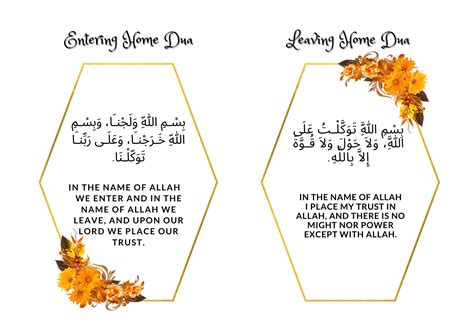 Entering Home Dua
بِسْمِ اللَّهِ وَلَجْنَا، وَبِسْمِ
اللَّهِ خَرَجْنَا، وَعَلَى رَبِّنَا
تَوَكَّلْنَا.
IN THE NAME OF ALLAH
WE ENTER AND IN THE
NAME OF ALLAH WE
LEAVE, AND UPON OUR
LORD WE PLACE OUR
TRUST.
Leaving Home Dua
بِسْمِ اللَّهِ تَوَكَّلْتُ عَلَى
اللَّهِ، وَلَا حَوْلَ وَلَا قُوَّةَ
إِلاَّ بِاللهِ.
IN THE NAME OF ALLAH
I PLACE MY TRUST IN
ALLAH, AND THERE IS NO
MIGHT NOR POWER
EXCEPT WITH ALLAH.